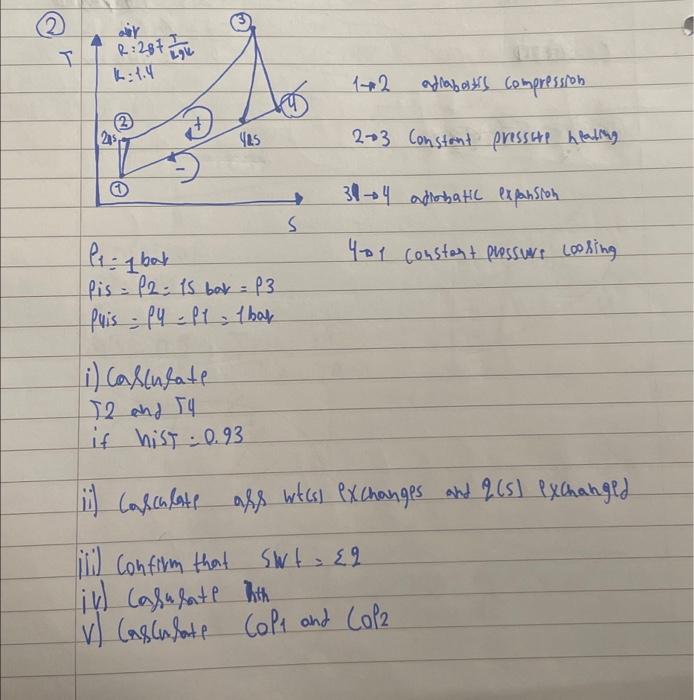 ②
T
air
R: 287 J/kgK
k: 1.4
③
②
2is
+
④
4is
-
①
S
1→2 adiabatis compression
2→3 Constant pressure heating
3→4 adiabatic expansion
4→1 constant pressure cooling
P1 = 1 bar
Pis = P2 = 15 bar = P3
P4is = P4 = P1 = 1 bar
i) Calculate
T2 and T4
if hisT = 0.93
ii) Calculate all wt(s) exchanges and q(s) exchanged
iii) Confirm that Swt = Σq
iv) Calculate hth
v) Calculate COP1 and COP2